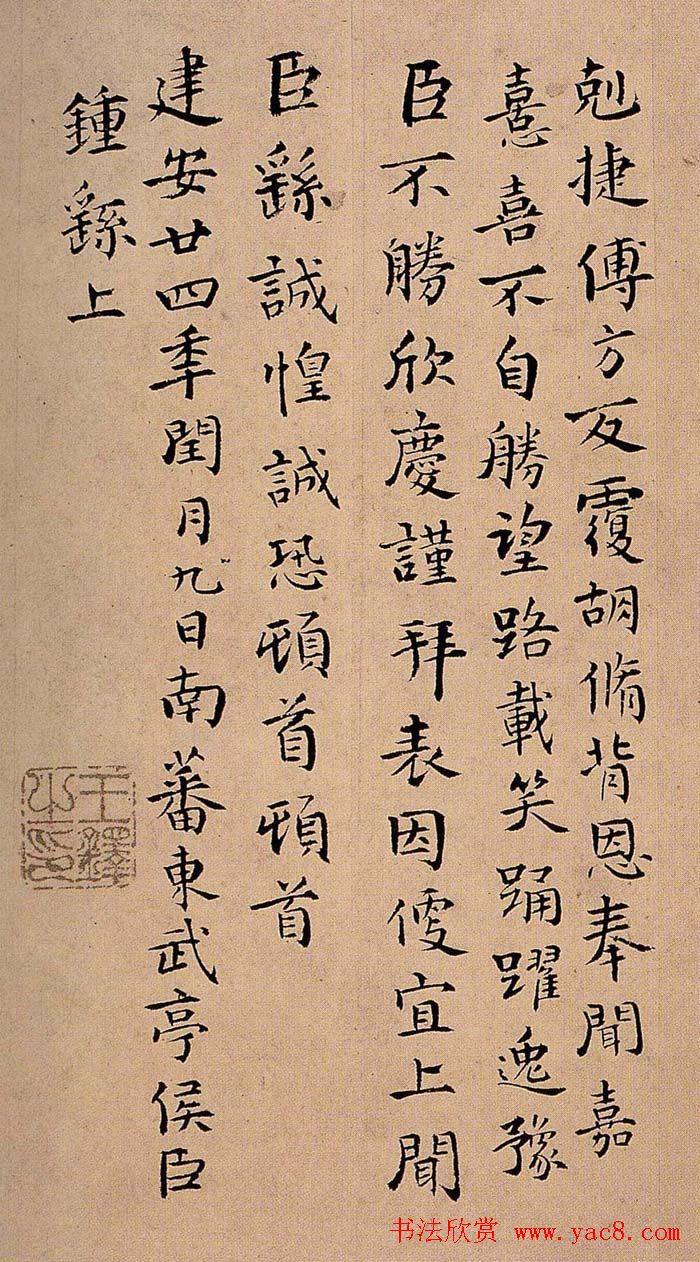 剋捷傅方反覆胡脩背恩奉聞嘉
憙喜不自勝望路載笑踊躍逸豫
臣不勝欣慶謹拜表因便宜上聞
臣繇誠惶誠恐頓首頓首
建安廿四年閏月九日南蕃東武亭侯臣
鍾繇上
王鐸之印
书法欣赏 www.yac8.com